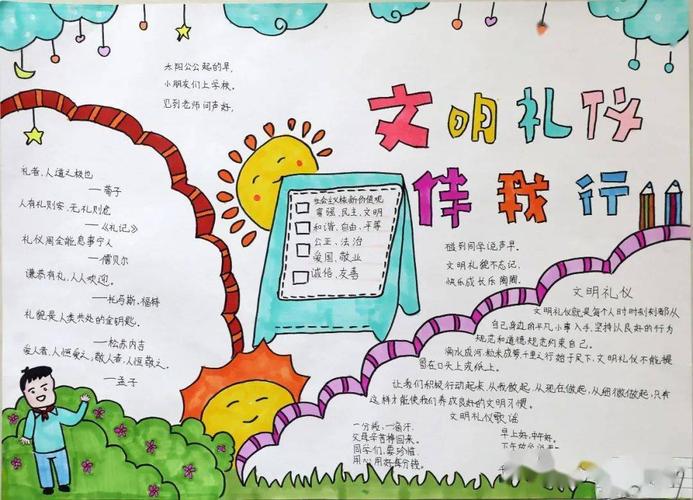 文明礼仪
伴我行
太阳公公起的早,
小朋友们上学校。
见到老师问声好,
礼者,人道之极也
——荀子
人有礼则安,无礼则危
——《礼记》
礼仪周全能息事宁人
——儒贝尔
谦恭有礼,人人欢迎。
——托马斯·福特
礼貌是人类共处的金钥匙。
——松苏内吉
爱人者,人恒爱之,敬人者,人恒敬之。
——孟子
社会主义核心价值观
富强、民主、文明
和谐、自由、平等
公正、法治
爱国、敬业
诚信、友善
碰到同学说声早。
文明礼貌不忘记,
快乐成长乐陶陶。
文明礼仪
文明礼仪就是每个人时时刻刻都从
自己身边的平凡小事入手,坚持以良好的行为
规范和道德规范约束自己。
滴水成河,粒米成箩,千里之行始于足下,文明礼仪不能搁
留在口头上或纸上。
让我们积极行动起来,从我做起,从现在做起,从细微做起,只有
这样才能使我们养成良好的文明习惯。
文明礼仪歌谣
一分钱,一滴汗,
父母辛苦挣回来。
同学们,要珍惜,
用心用好每分钱。
早上好,中午好,